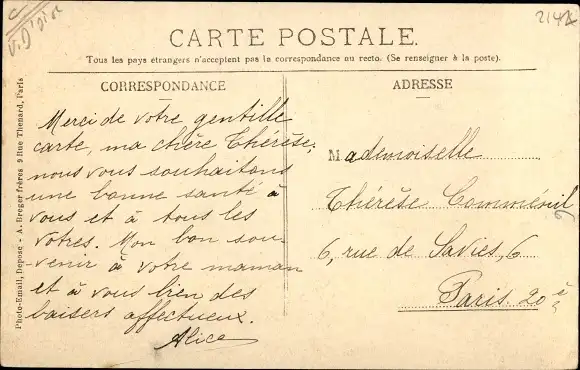 CARTE POSTALE.
Tous les pays étrangers n'acceptent pas la correspondance au recto. (Se renseigner à la poste).
CORRESPONDANCE
Merci de votre gentille
carte, ma chère Thérèse,
nous vous souhaitons
une bonne santé à
vous et à tous les
votres. Mon bon sou-
venir à votre maman
et à vous bien des
baisers affectueux.
Alice
ADRESSE
Mademoiselle
Thérèse
6, rue de Savies, 6
Paris. 20è
Photo-Email, Depose - A. Breger frères 9 Rue Thenard, Paris